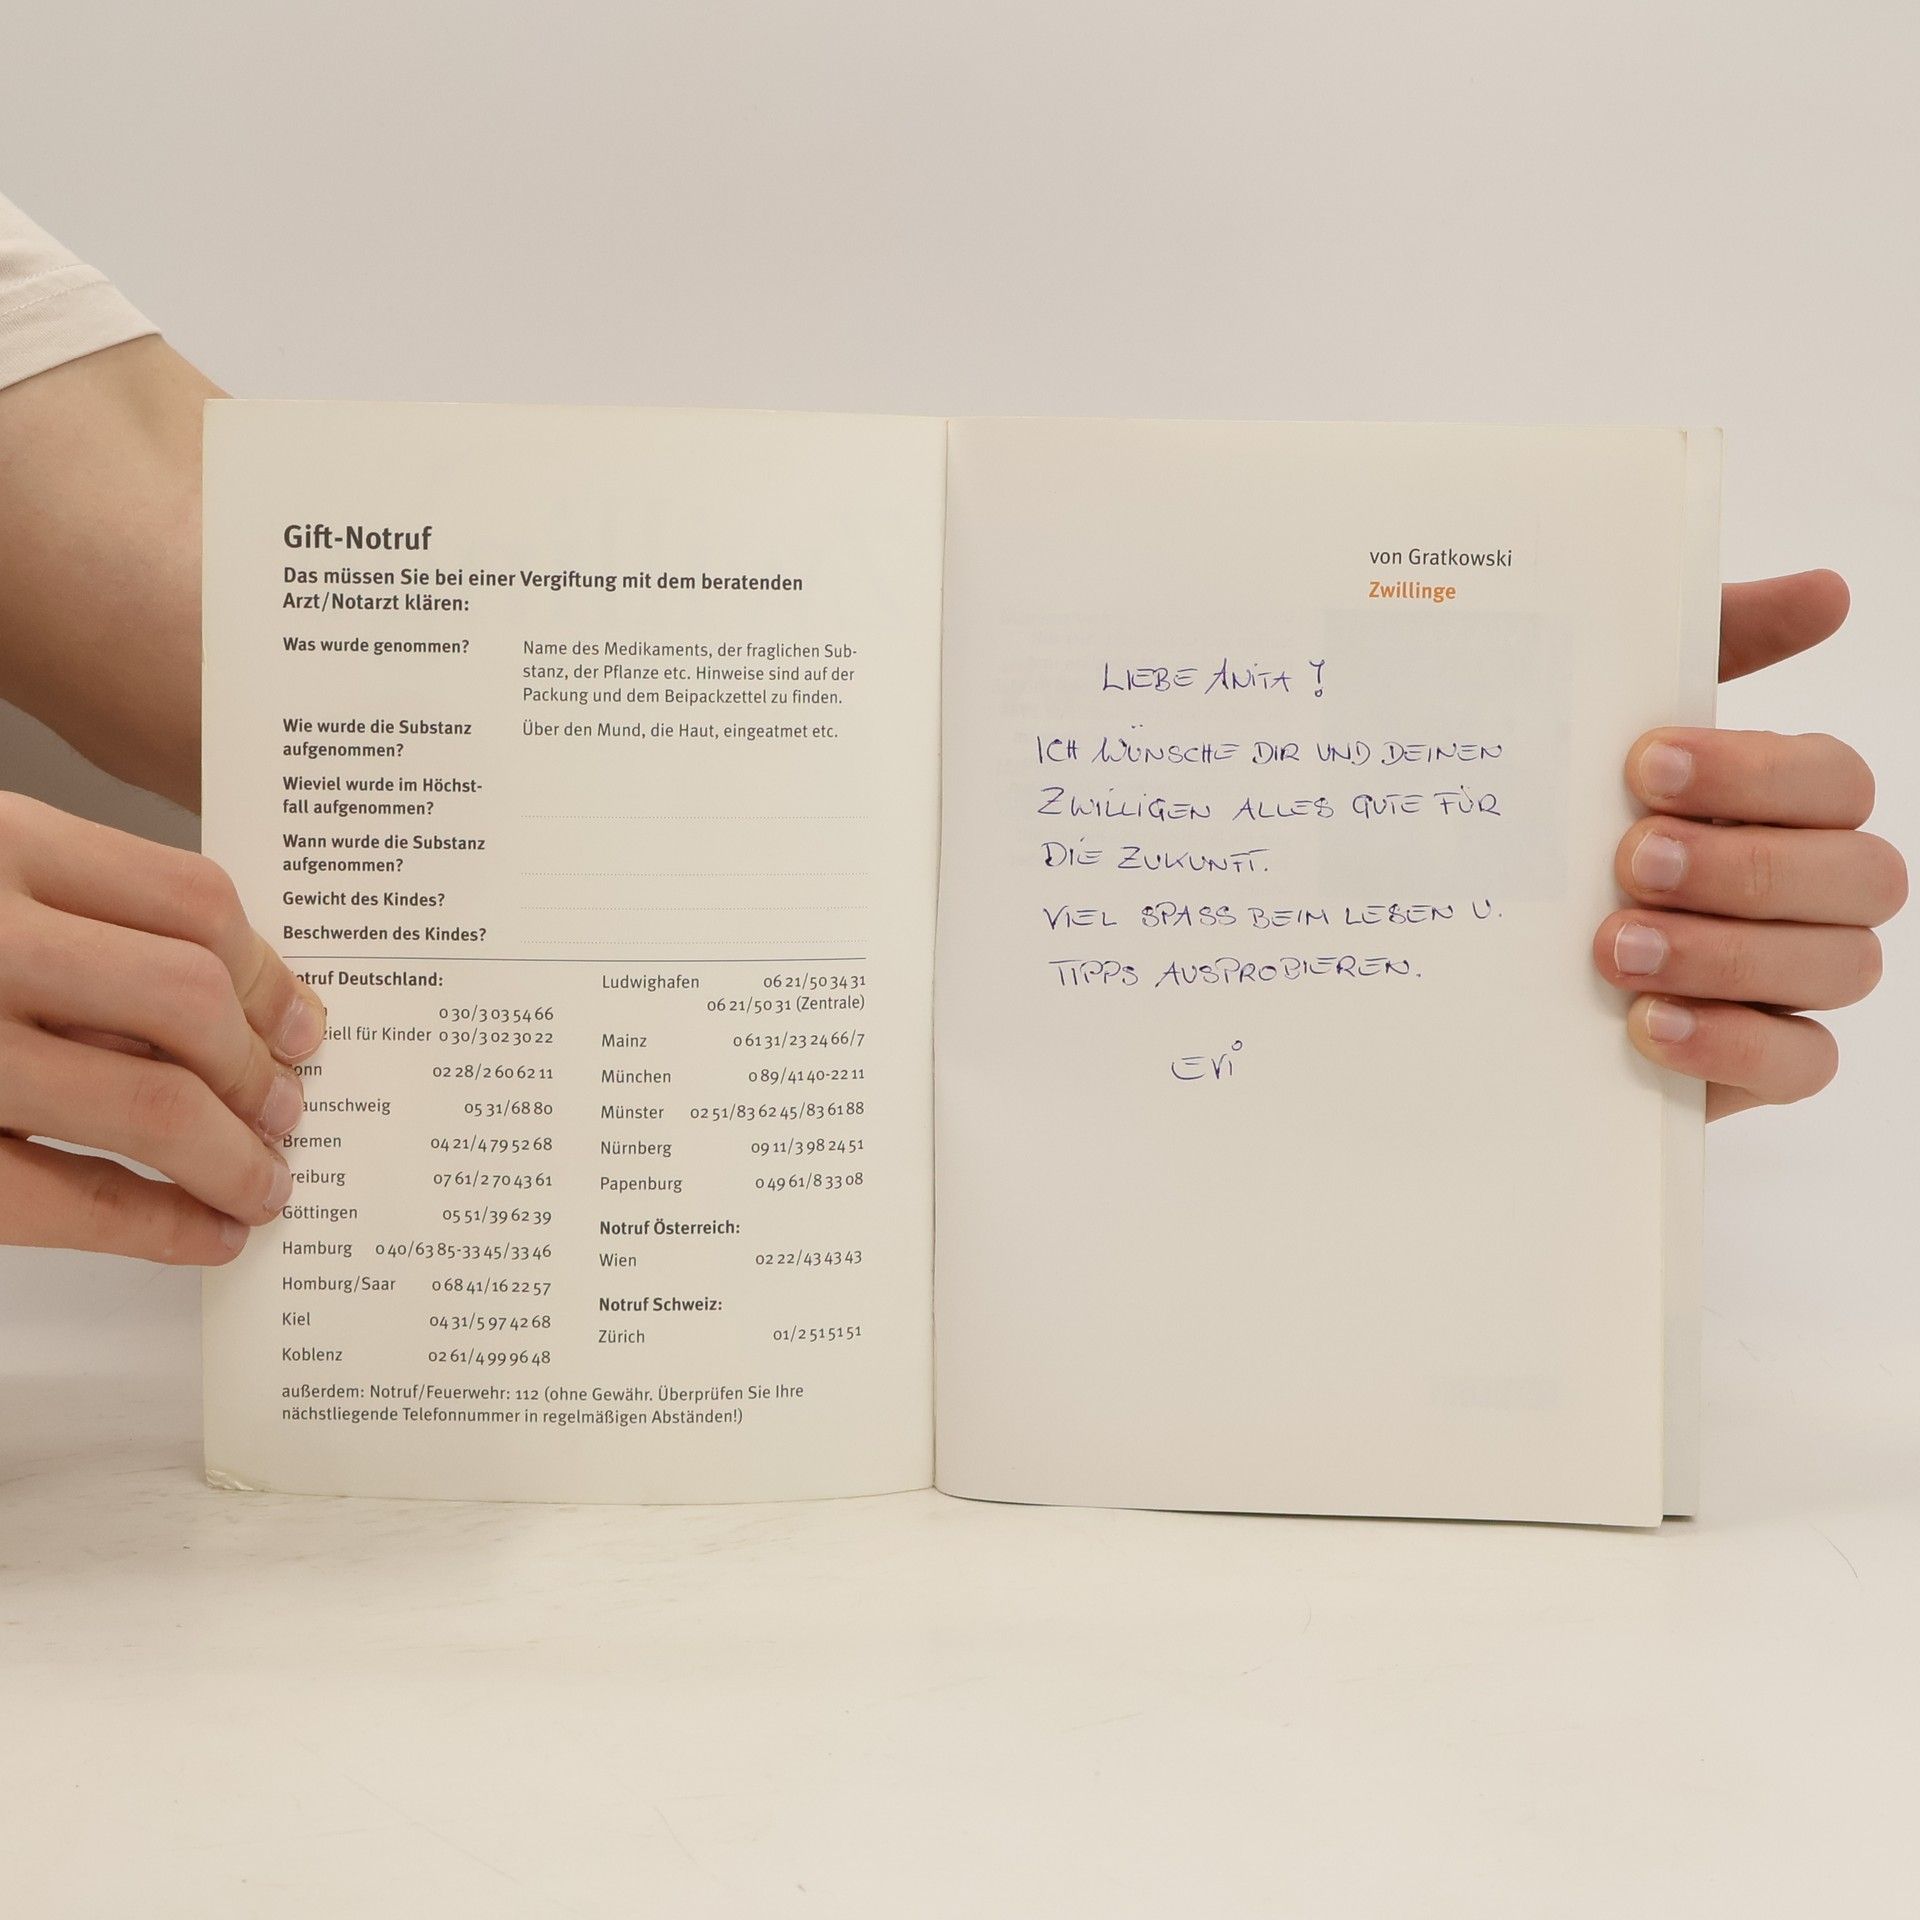 Gift-Notruf
Das müssen Sie bei einer Vergiftung mit dem beratenden
Arzt/Notarzt klären:
Was wurde genommen?
Name des Medikaments, der fraglichen Sub-
stanz, der Pflanze etc. Hinweise sind auf der
Packung und dem Beipackzettel zu finden.
Wie wurde die Substanz
aufgenommen?
Über den Mund, die Haut, eingeatmet etc.
Wieviel wurde im Höchst-
fall aufgenommen?
Wann wurde die Substanz
aufgenommen?
Gewicht des Kindes?
Beschwerden des Kindes?
otruf Deutschland:
n 0 30/3 03 54 66
ziell für Kinder 0 30/3 02 30 22
onn 02 28/2 60 62 11
aunschweig 05 31/68 80
Bremen 04 21/4 79 52 68
reiburg 07 61/2 70 43 61
Göttingen 05 51/39 62 39
Hamburg 0 40/63 85-33 45/33 46
Homburg/Saar 0 68 41/16 22 57
Kiel 04 31/5 97 42 68
Koblenz 02 61/4 99 96 48
Ludwighafen 06 21/50 34 31
06 21/50 31 (Zentrale)
Mainz 0 61 31/23 24 66/7
München 0 89/41 40-22 11
Münster 02 51/83 62 45/83 61 88
Nürnberg 09 11/3 98 24 51
Papenburg 0 49 61/8 33 08
Notruf Österreich:
Wien 02 22/43 43 43
Notruf Schweiz:
Zürich 01/2 51 51 51
außerdem: Notruf/Feuerwehr: 112 (ohne Gewähr. Überprüfen Sie Ihre
nächstliegende Telefonnummer in regelmäßigen Abständen!)
von Gratkowski
Zwillinge
LIEBE ANITA !
ICH WÜNSCHE DIR UND DEINEN
ZWILLIGEN ALLES GUTE FÜR
DIE ZUKUNFT.
VIEL SPASS BEIM LESEN U.
TIPPS AUSPROBIEREN.
EVI